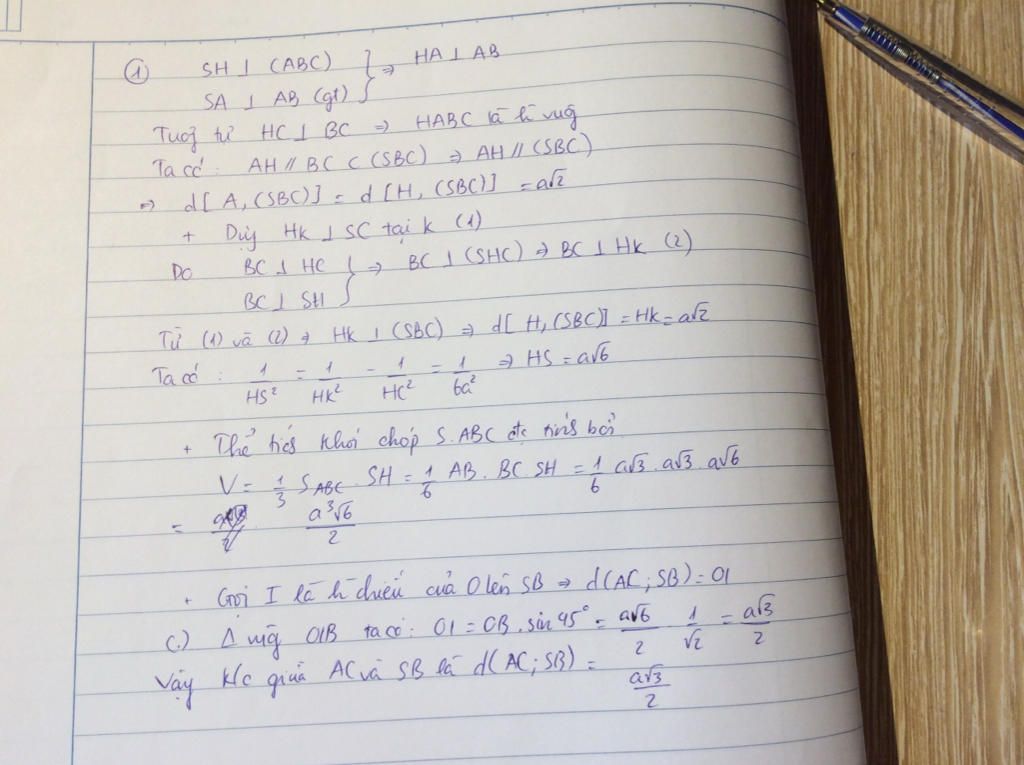 ① SH ⊥ (ABC) } ⇒ HA ⊥ AB
SA ⊥ AB (gt)
Tương tự HC ⊥ BC ⇒ HABC là h vuông
Ta có: AH // BC ⊂ (SBC) ⇒ AH // (SBC)
⇒ d[A, (SBC)] = d[H, (SBC)] = a√2
+ Dựng HK ⊥ SC tại K (1)
Do BC ⊥ HC } ⇒ BC ⊥ (SHC) ⇒ BC ⊥ HK (2)
BC ⊥ SH
Từ (1) và (2) ⇒ HK ⊥ (SBC) ⇒ d[H, (SBC)] = HK = a√2
Ta có: 1/HS² = 1/HK² - 1/HC² = 1/6a² ⇒ HS = a√6
+ Thể tích khối chóp S.ABC đc tính bởi
V = 1/3 S_ABC . SH = 1/6 AB . BC . SH = 1/6 a√3 . a√3 . a√6
= a³√6/2
+ Gọi I là h chiếu của O lên SB ⇒ d(AC; SB) = OI
C.) Δ vuông OIB ta có: OI = OB . sin 45° = a√6/2 1/√2 = a√3/2
Vậy k/c giữa AC và SB là d(AC; SB) = a√3/2